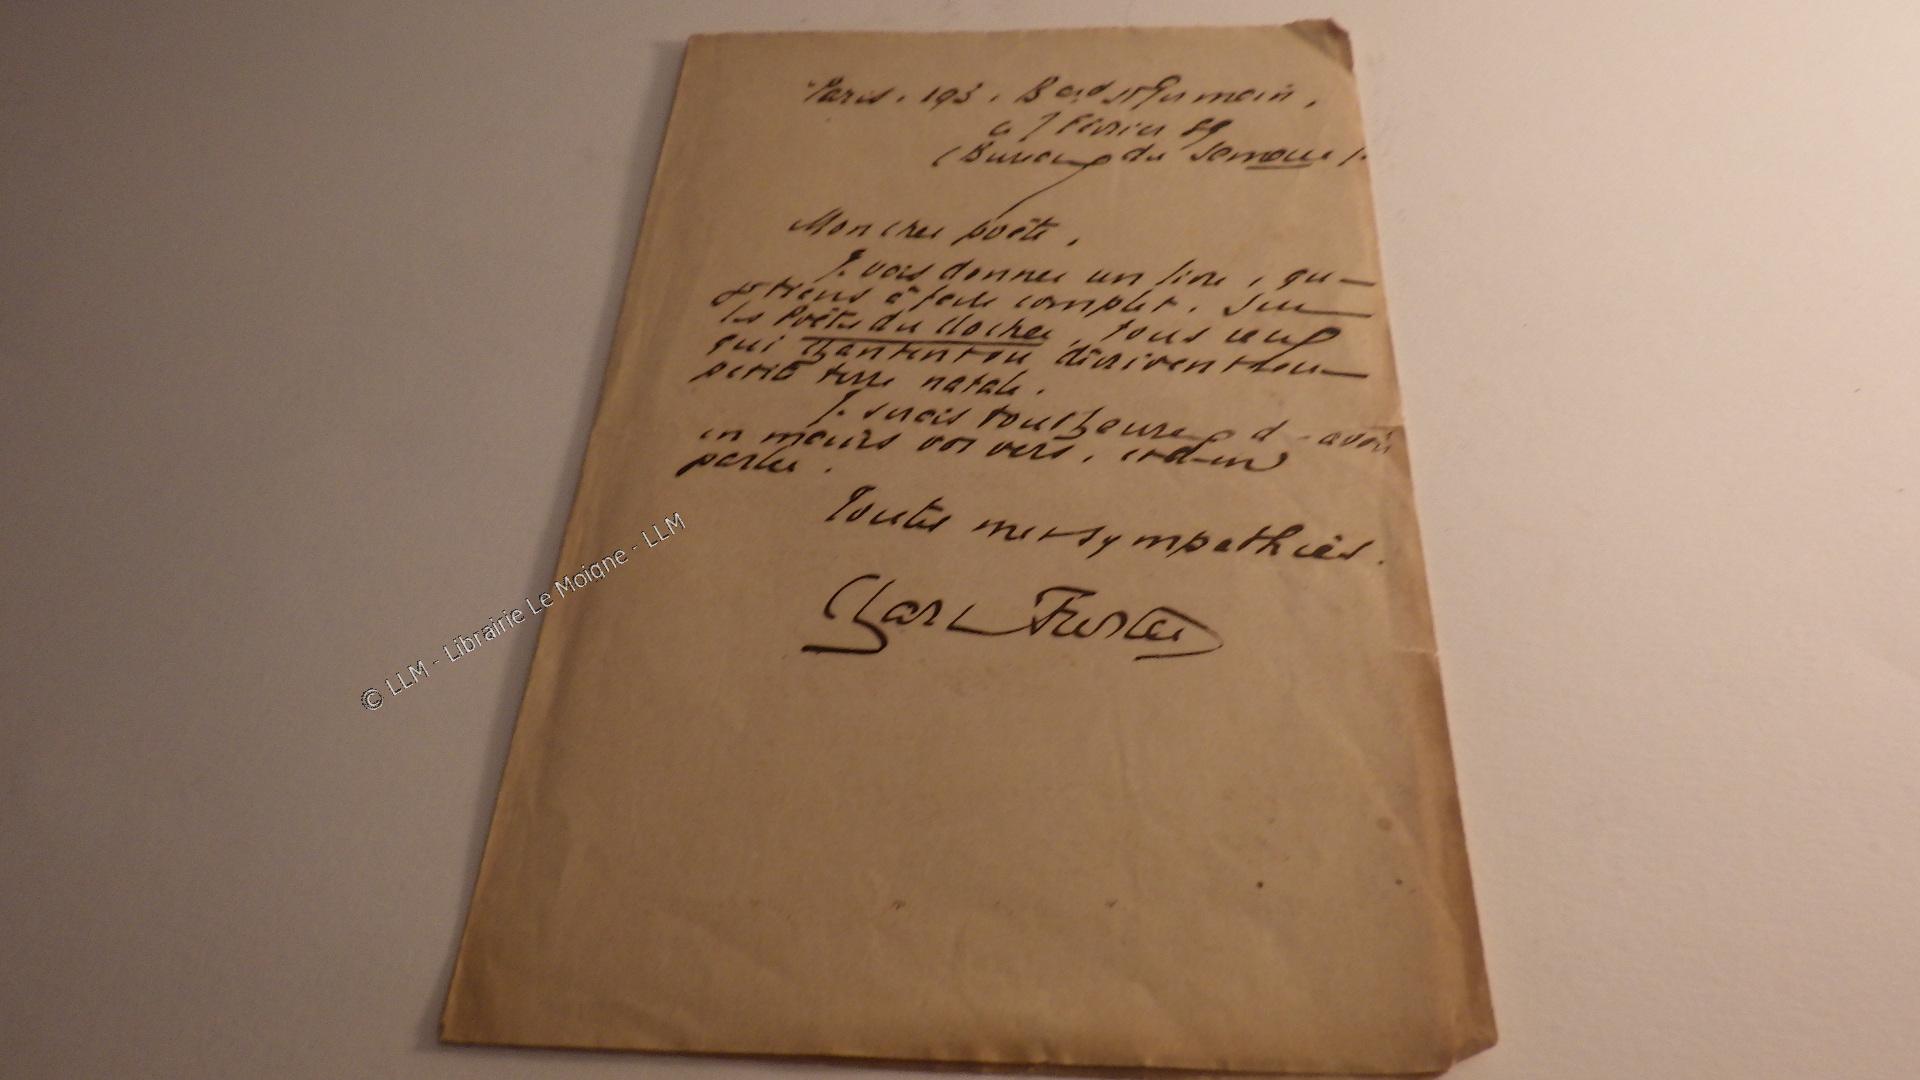 Paris. 193. Bard St Germain,
le 7 Février 89
(Bureau du Semeur).
Mon cher poète,
Je vais donner un livre, que
je tiens à faire complet, sur
les Poètes du clocher, tous ceux
qui chantent ou décrivent leur
petite terre natale.
Je serais tout heureux d'avoir
en mains vos vers, et d'en
parler.
Toutes mes sympathies.
Charles Fuster
© LLM - Librairie Le Moigne - LLM